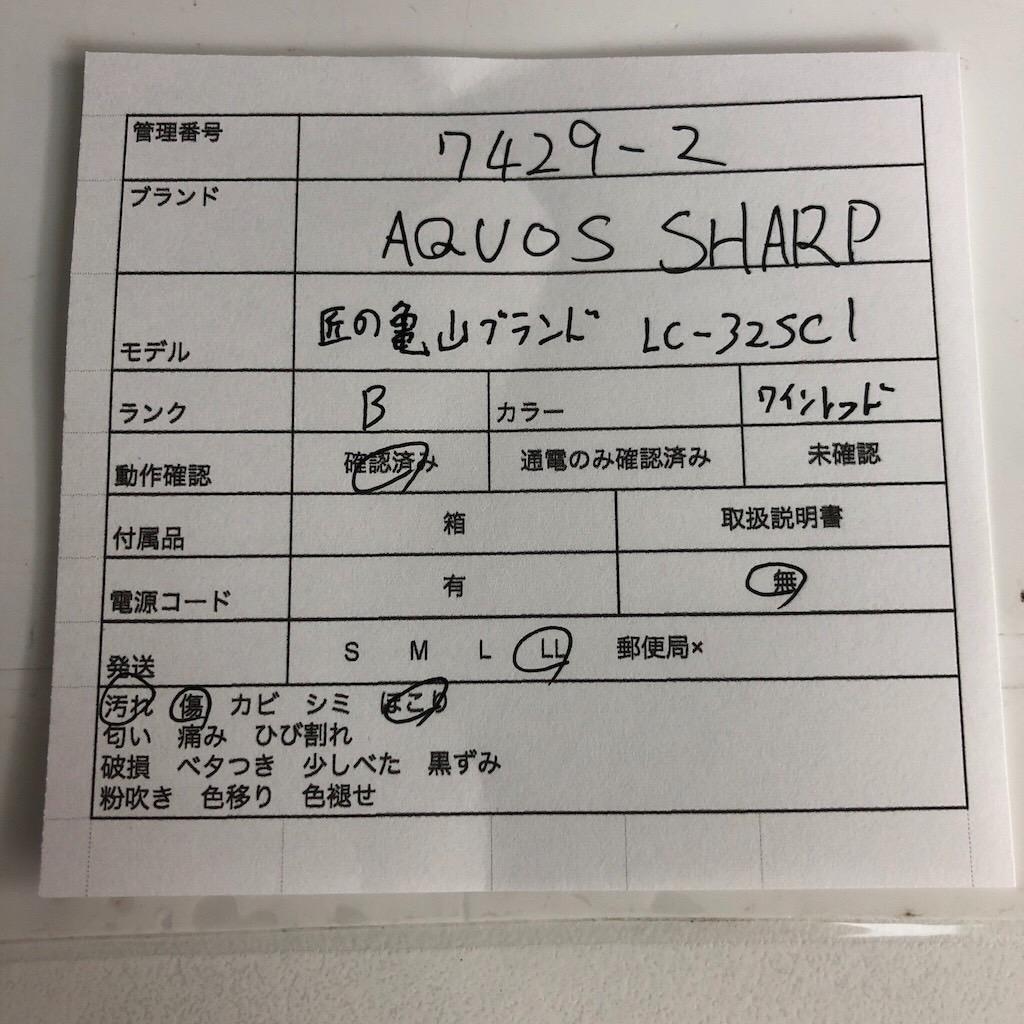 管理番号 7429-2
ブランド AQUOS SHARP
モデル 匠の亀山ブランド LC-32SC1
ランク B カラー ワインレッド
動作確認 確認済み 通電のみ確認済み 未確認
付属品 箱 取扱説明書
電源コード 有 無
発送 S M L LL 郵便局×
汚れ 傷 カビ シミ ほこり
匂い 痛み ひび割れ
破損 ベタつき 少しべた 黒ずみ
粉吹き 色移り 色褪せ